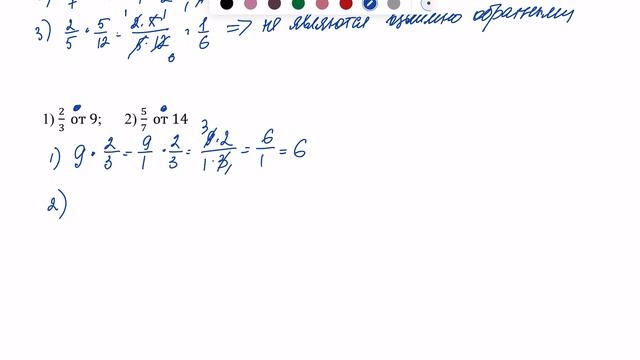 3) 2/5 · 5/12 = 2·5/5·12 = 1/6 => не являются взаимно обратными
1) 2/3 от 9; 2) 5/7 от 14
1) 9 · 2/3 = 9/1 · 2/3 = 9·2/1·3 = 6/1 = 6
2)